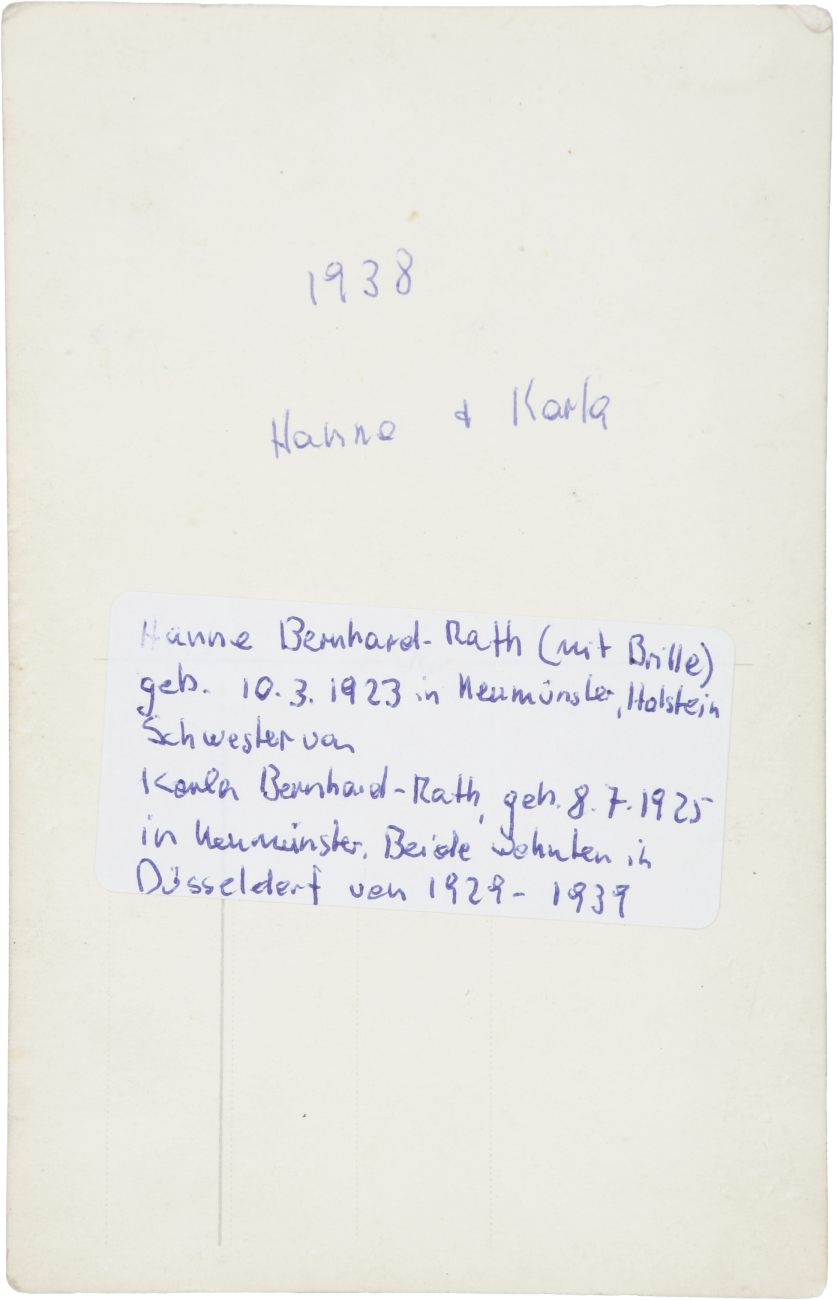 1938
Hanne & Karla
Hanne Bernhard-Rath (mit Brille)
geb. 10.3.1923 in Neumünster, Holstein
Schwester von
Karla Bernhard-Rath, geb. 8.7.1925
in Neumünster. Beide wohnten in
Düsseldorf von 1929 - 1939